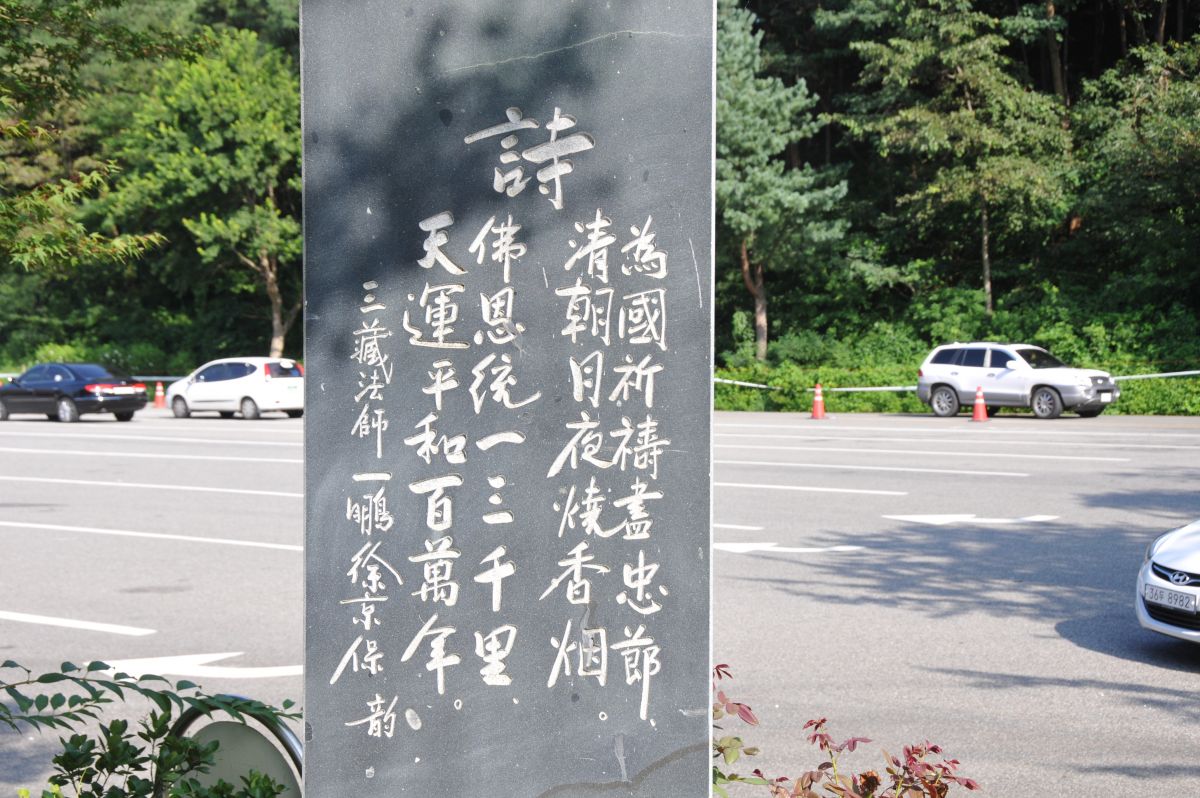 詩
為國祈禱盡忠節、
清朝日夜燒香烟。
佛恩統一三千里、
天運平和百萬年。
三藏法師 一鵬徐京保 韵
8982